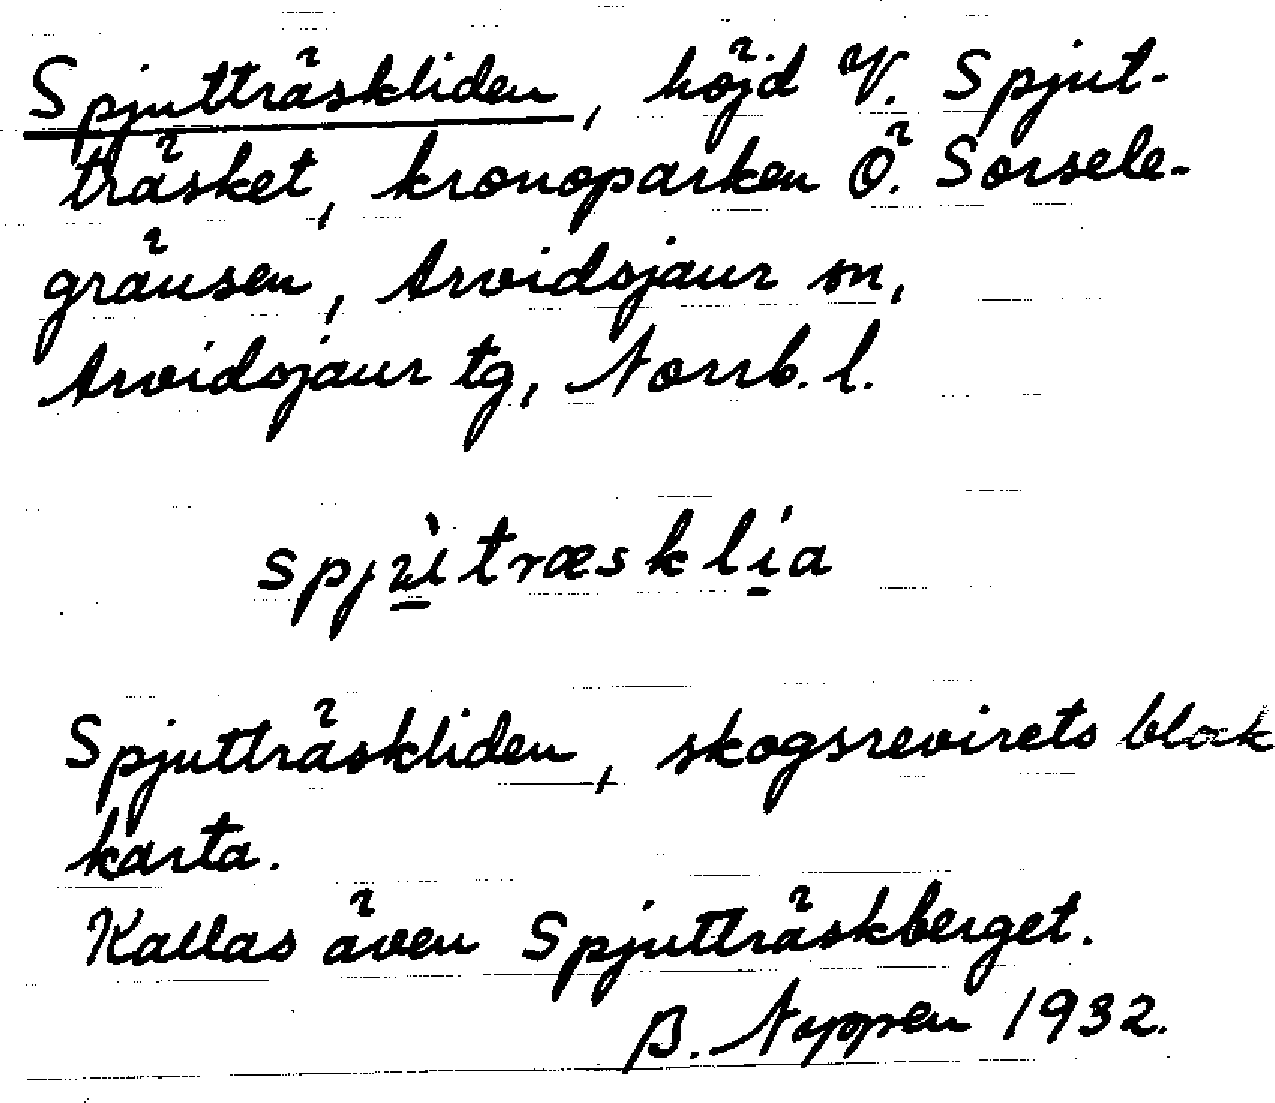 Spjutträskliden, höjd V. Spjut-
träsket, kronoparken Ö. Sorsele-
gränsen, Arvidsjaur sn,
Arvidsjaur tg, Norrb. l.
spjùtræsklía
Spjutträskliden, skogsrevirets block
karta.
Kallas även Spjutträskberget.
B. Noppen 1932.